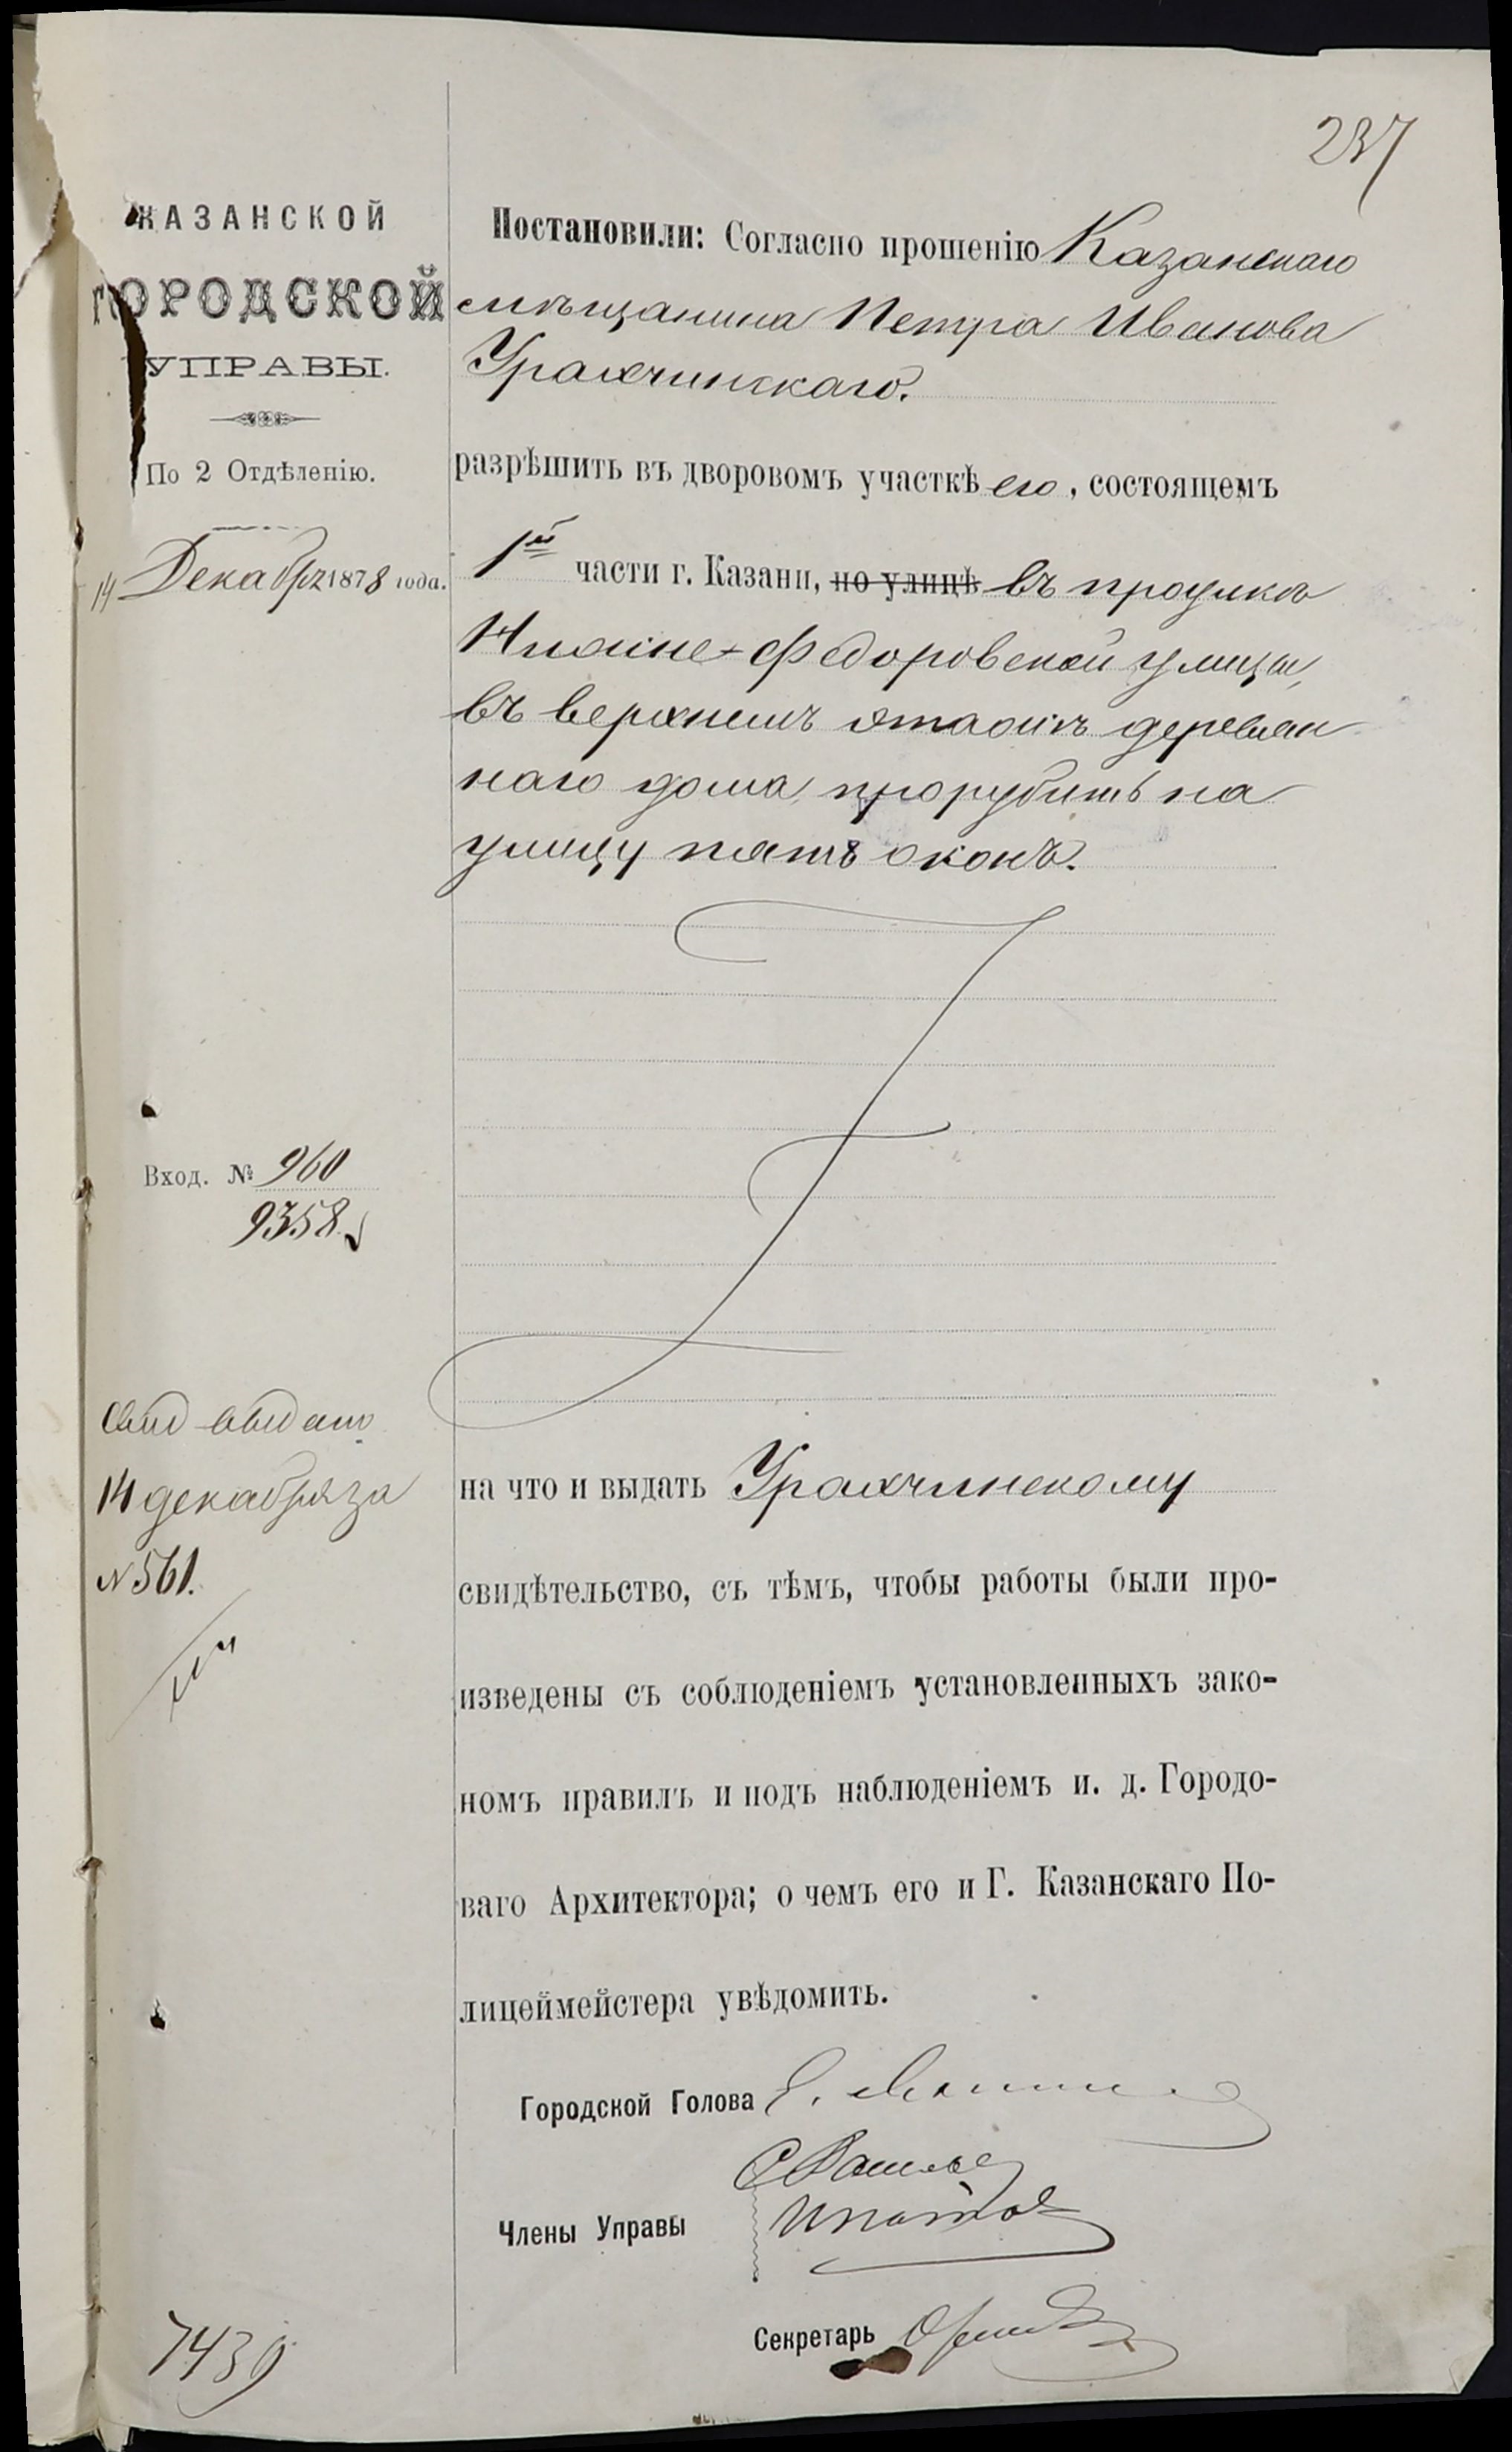 237
КАЗАНСКОЙ
ГОРОДСКОЙ
УПРАВЫ.
По 2 Отдѣленію.
14 Декабря 1878 года.
Постановили: Согласно прошенію Казанскаго
мѣщанина Петра Иванова
Урахчинскаго.
разрѣшить въ дворовомъ участкѣ его, состоящемъ
1й части г. Казани, по улицѣ въ проулкѣ
Нижне-Федоровской улицы,
въ верхнемъ этажѣ деревян
наго дома, прорубить на
улицу пять оконъ.
Вход. № 960
9358.
Свид выдано
14 декабря за
№ 561.
на что и выдать Урахчинскому
свидѣтельство, съ тѣмъ, чтобы работы были про-
изведены съ соблюденіемъ установленныхъ зако-
номъ правилъ и подъ наблюденіемъ и. д. Городо-
ваго Архитектора; о чемъ его и Г. Казанскаго По-
лицеймейстера увѣдомить.
Городской Голова
Члены Управы
Ипатов
Секретарь
7439